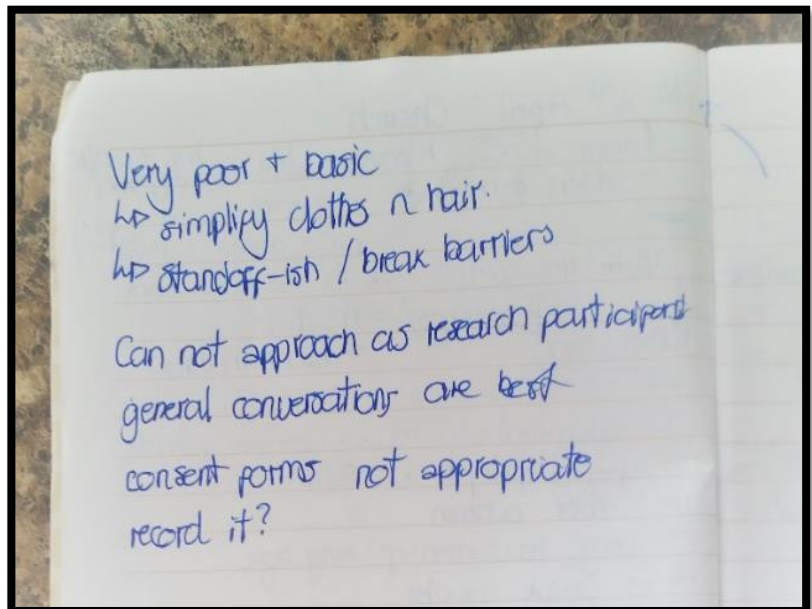 Very poor + basic
↳ simplify clothes n hair.
↳ standoff-ish / break barriers
Can not approach as research participant
general conversations are best
consent forms not appropriate
record it?